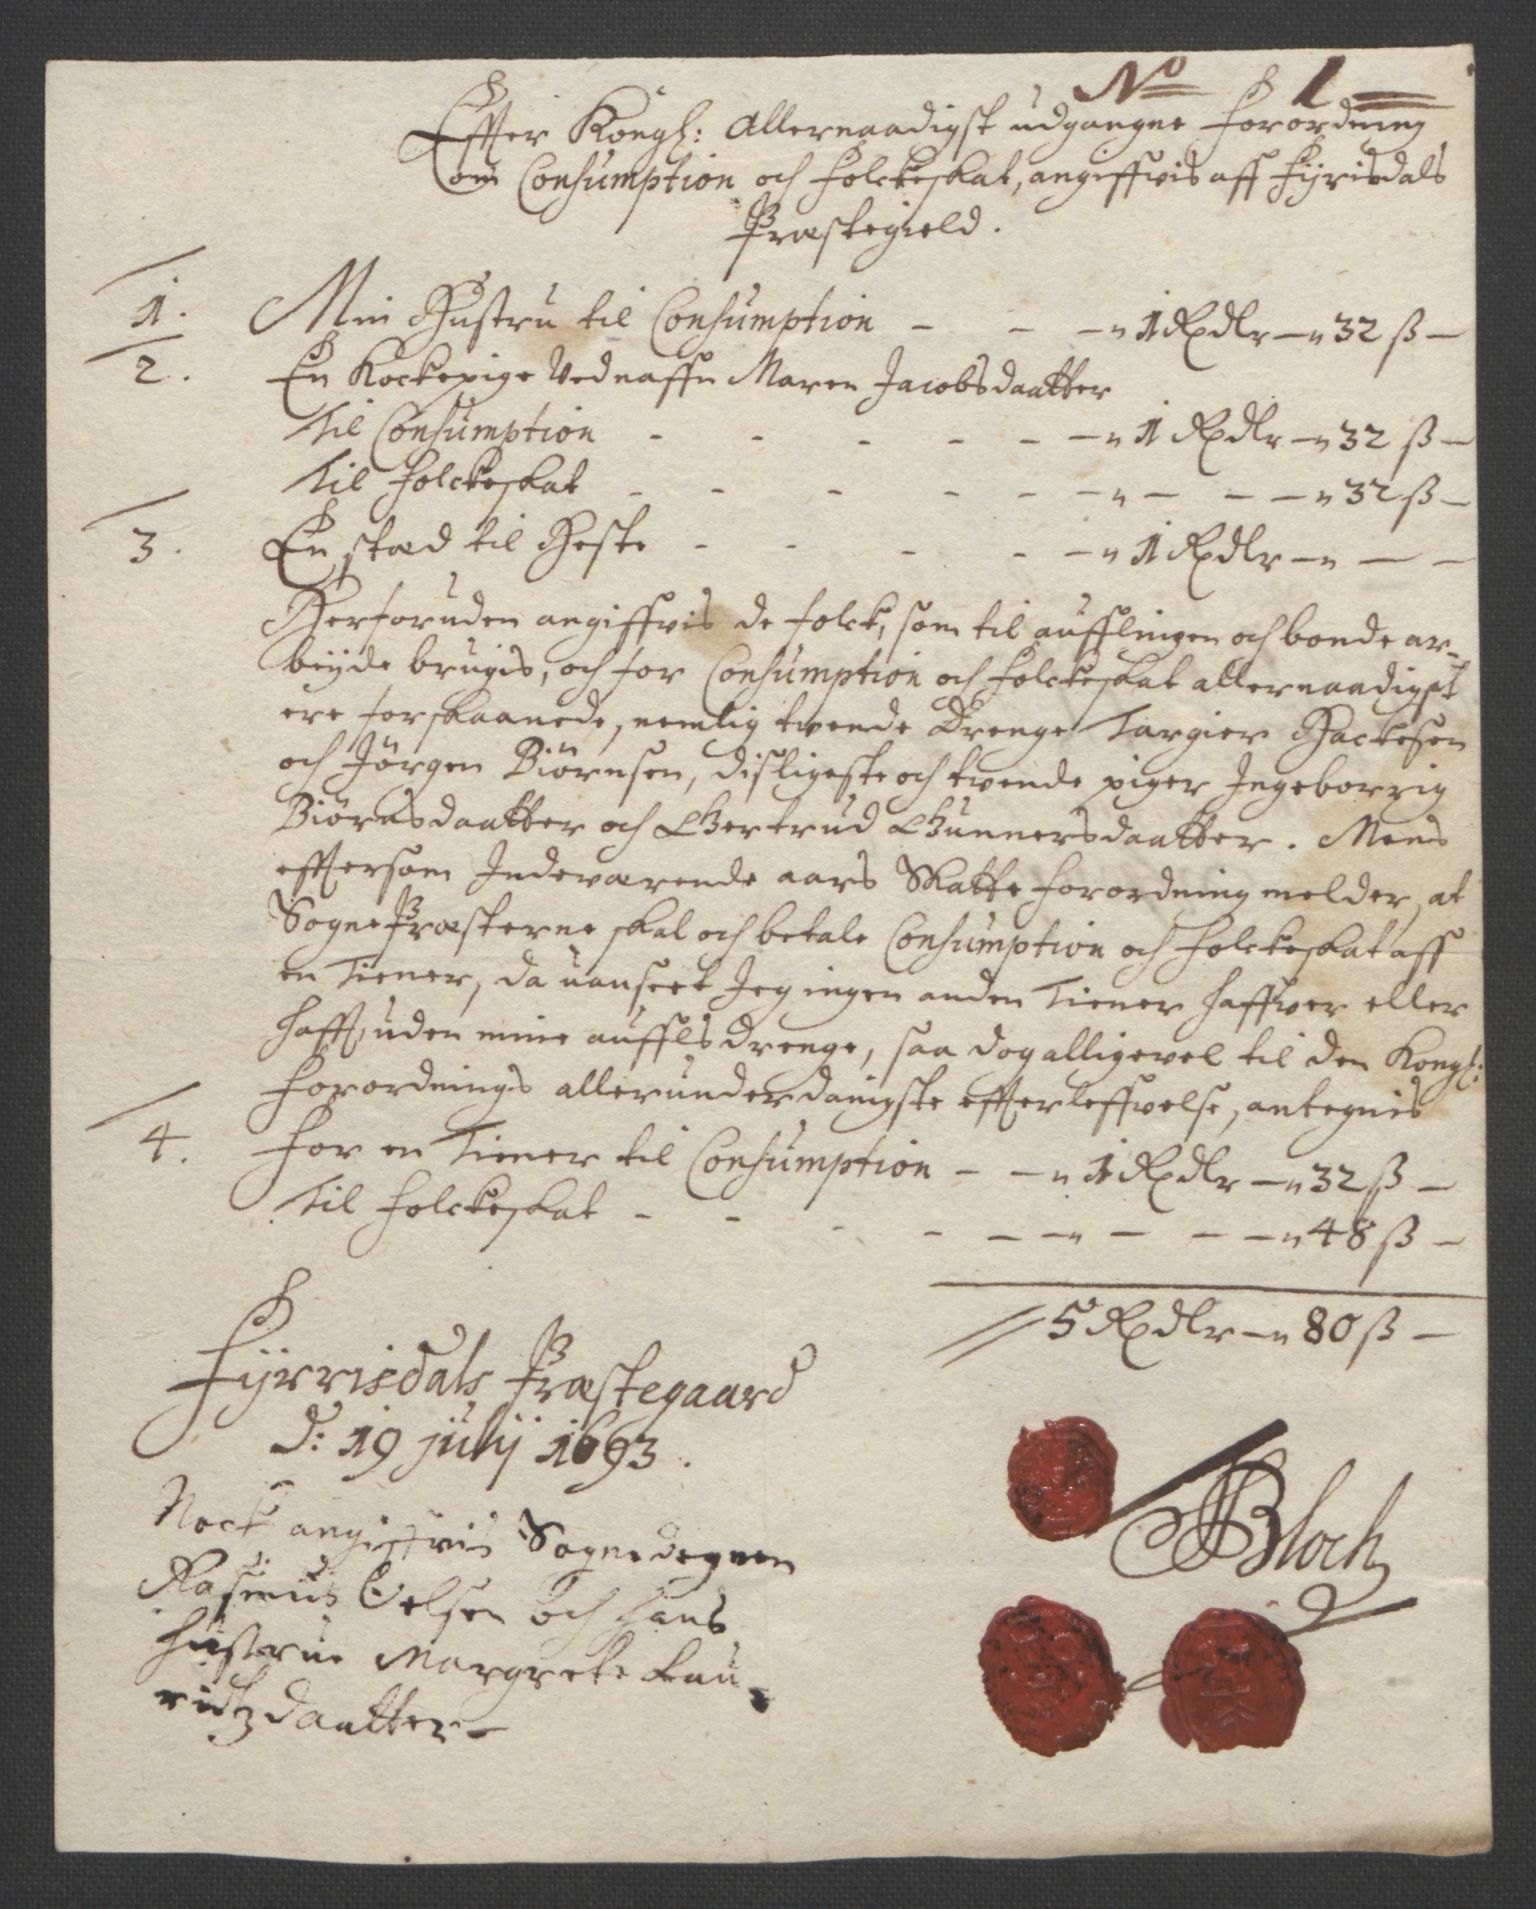 No 1
Effter Kongl: Allernaadigst udgangne forordning
om Consumption och folckeskat, angiffvis aff Fyrisdals
Præstegield.
1. Min Hustru til Consumption - - - " 1 Rdlr - " 32 ß -
2. En Kockepige Vednaffn Maren Jacobsdaatter
til Consumption - - - - - " 1 Rdlr - " 32 ß -
til folckeskat - - - - - - " - - - " 32 ß -
3. En stæd til Heste - - - - - " 1 Rdlr - " - -
Herforuden angiffvis de folck, som til aufflingen och bonde ar-
beyde brugis, och for Consumption och folckeskat allernaadigst
ere forskaanede, nemlig tvende Drenge Targier Hackesen
och Jörgen Biörnsen, disligeste och tvende piger Ingeborrig
Biörnsdaatter och Giertrud Gunnersdaatter. Mens
effttersom Indeværende aars Skatte forordning melder, at
Sogne Præsterne skal och betale Consumption och folckeskat aff
en Tiener, da uanseet Jeg ingen anden Tiener haffver eller
hafft, uden mine auffls drenge, saa dog alligevel til den Kongl:
forordnings allerunderdanigste effterleffvelse, antegnis
4. for en Tiener til Consumption - - " 1 Rdlr - " 32 ß -
til folckeskat - - - - - - " - - - " 48 ß -
5 Rdlr - " 80 ß -
Fyrrisdals Præstegaard
d: 19 julij 1693.
Nock angiffvis Sognedegnen
Rasmus Oelsen och hans
hustrue Margrete Lau-
ridtzdaatter -
Bloch